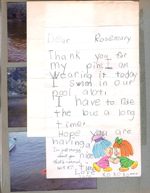 Dear Rosemary
Thank you for
my pin I am
wearing it today
I swim in our
pool
I have to ride
the bus a long
time.
Hope you are
having a
Love